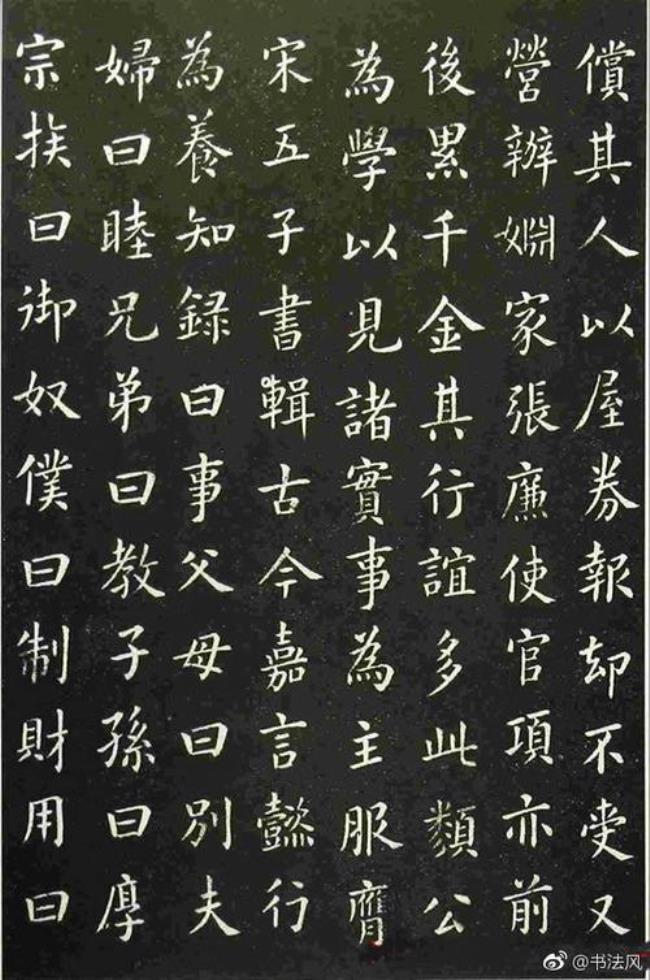 償其人以屋券報却不受又
營辦嫺家張廉使官項亦前
後累千金其行誼多此類公
為學以見諸實事為主服膺
宋五子書輯古今嘉言懿行
為養知録曰事父母曰別夫
婦曰睦兄弟曰教子孫曰厚
宗族曰御奴僕曰制財用曰
@书法风